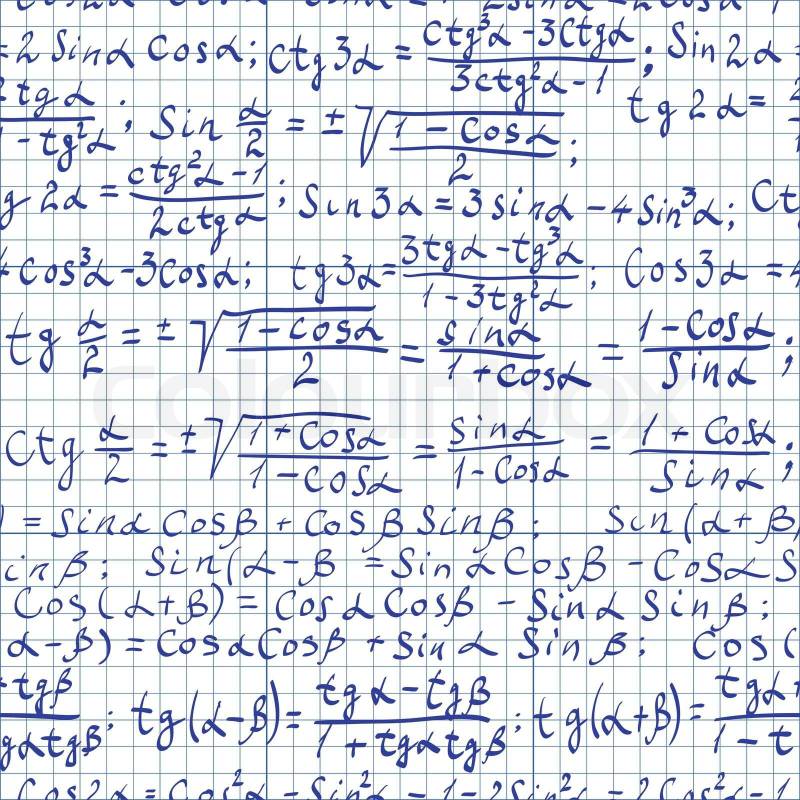 = 2 Sin α Cos α; ctg 3α = (ctg³α - 3ctgα)/(3ctg²α - 1); Sin 2α =
tg α / 1 - tg²α; Sin α/2 = ± √(1 - Cos α)/2; tg 2α =
g 2α = (ctg²α - 1)/(2ctg α); Sin 3α = 3 sin α - 4 Sin³α; Ct
4 Cos³α - 3Cosα; tg 3α = (3tgα - tg³α)/(1 - 3tg²α); Cos 3α = 4
tg α/2 = ± √(1 - cosα)/2 = sinα/(1 + cosα) = (1 - Cosα)/Sinα;
Ctg α/2 = ± √(1 + Cosα)/(1 - Cosα) = Sinα/(1 - Cosα) = (1 + Cosα)/Sinα;
) = Sinα Cosβ + Cosβ Sinβ; Sin(α + β)
inβ; Sin(α - β = Sinα Cosβ - Cosα S
Cos(α + β) = Cosα Cosβ - Sinα Sinβ;
α - β) = Cosα Cosβ + Sinα Sinβ; Cos(
+ tgβ / gαtgβ; tg(α - β) = (tgα - tgβ)/(1 + tgαtgβ); tg(α + β) = tgα / 1 - t
Cos2α = Cos²α - Sin²α - 1 - 2Sin²α - 2Cos²α - 1
colourbox